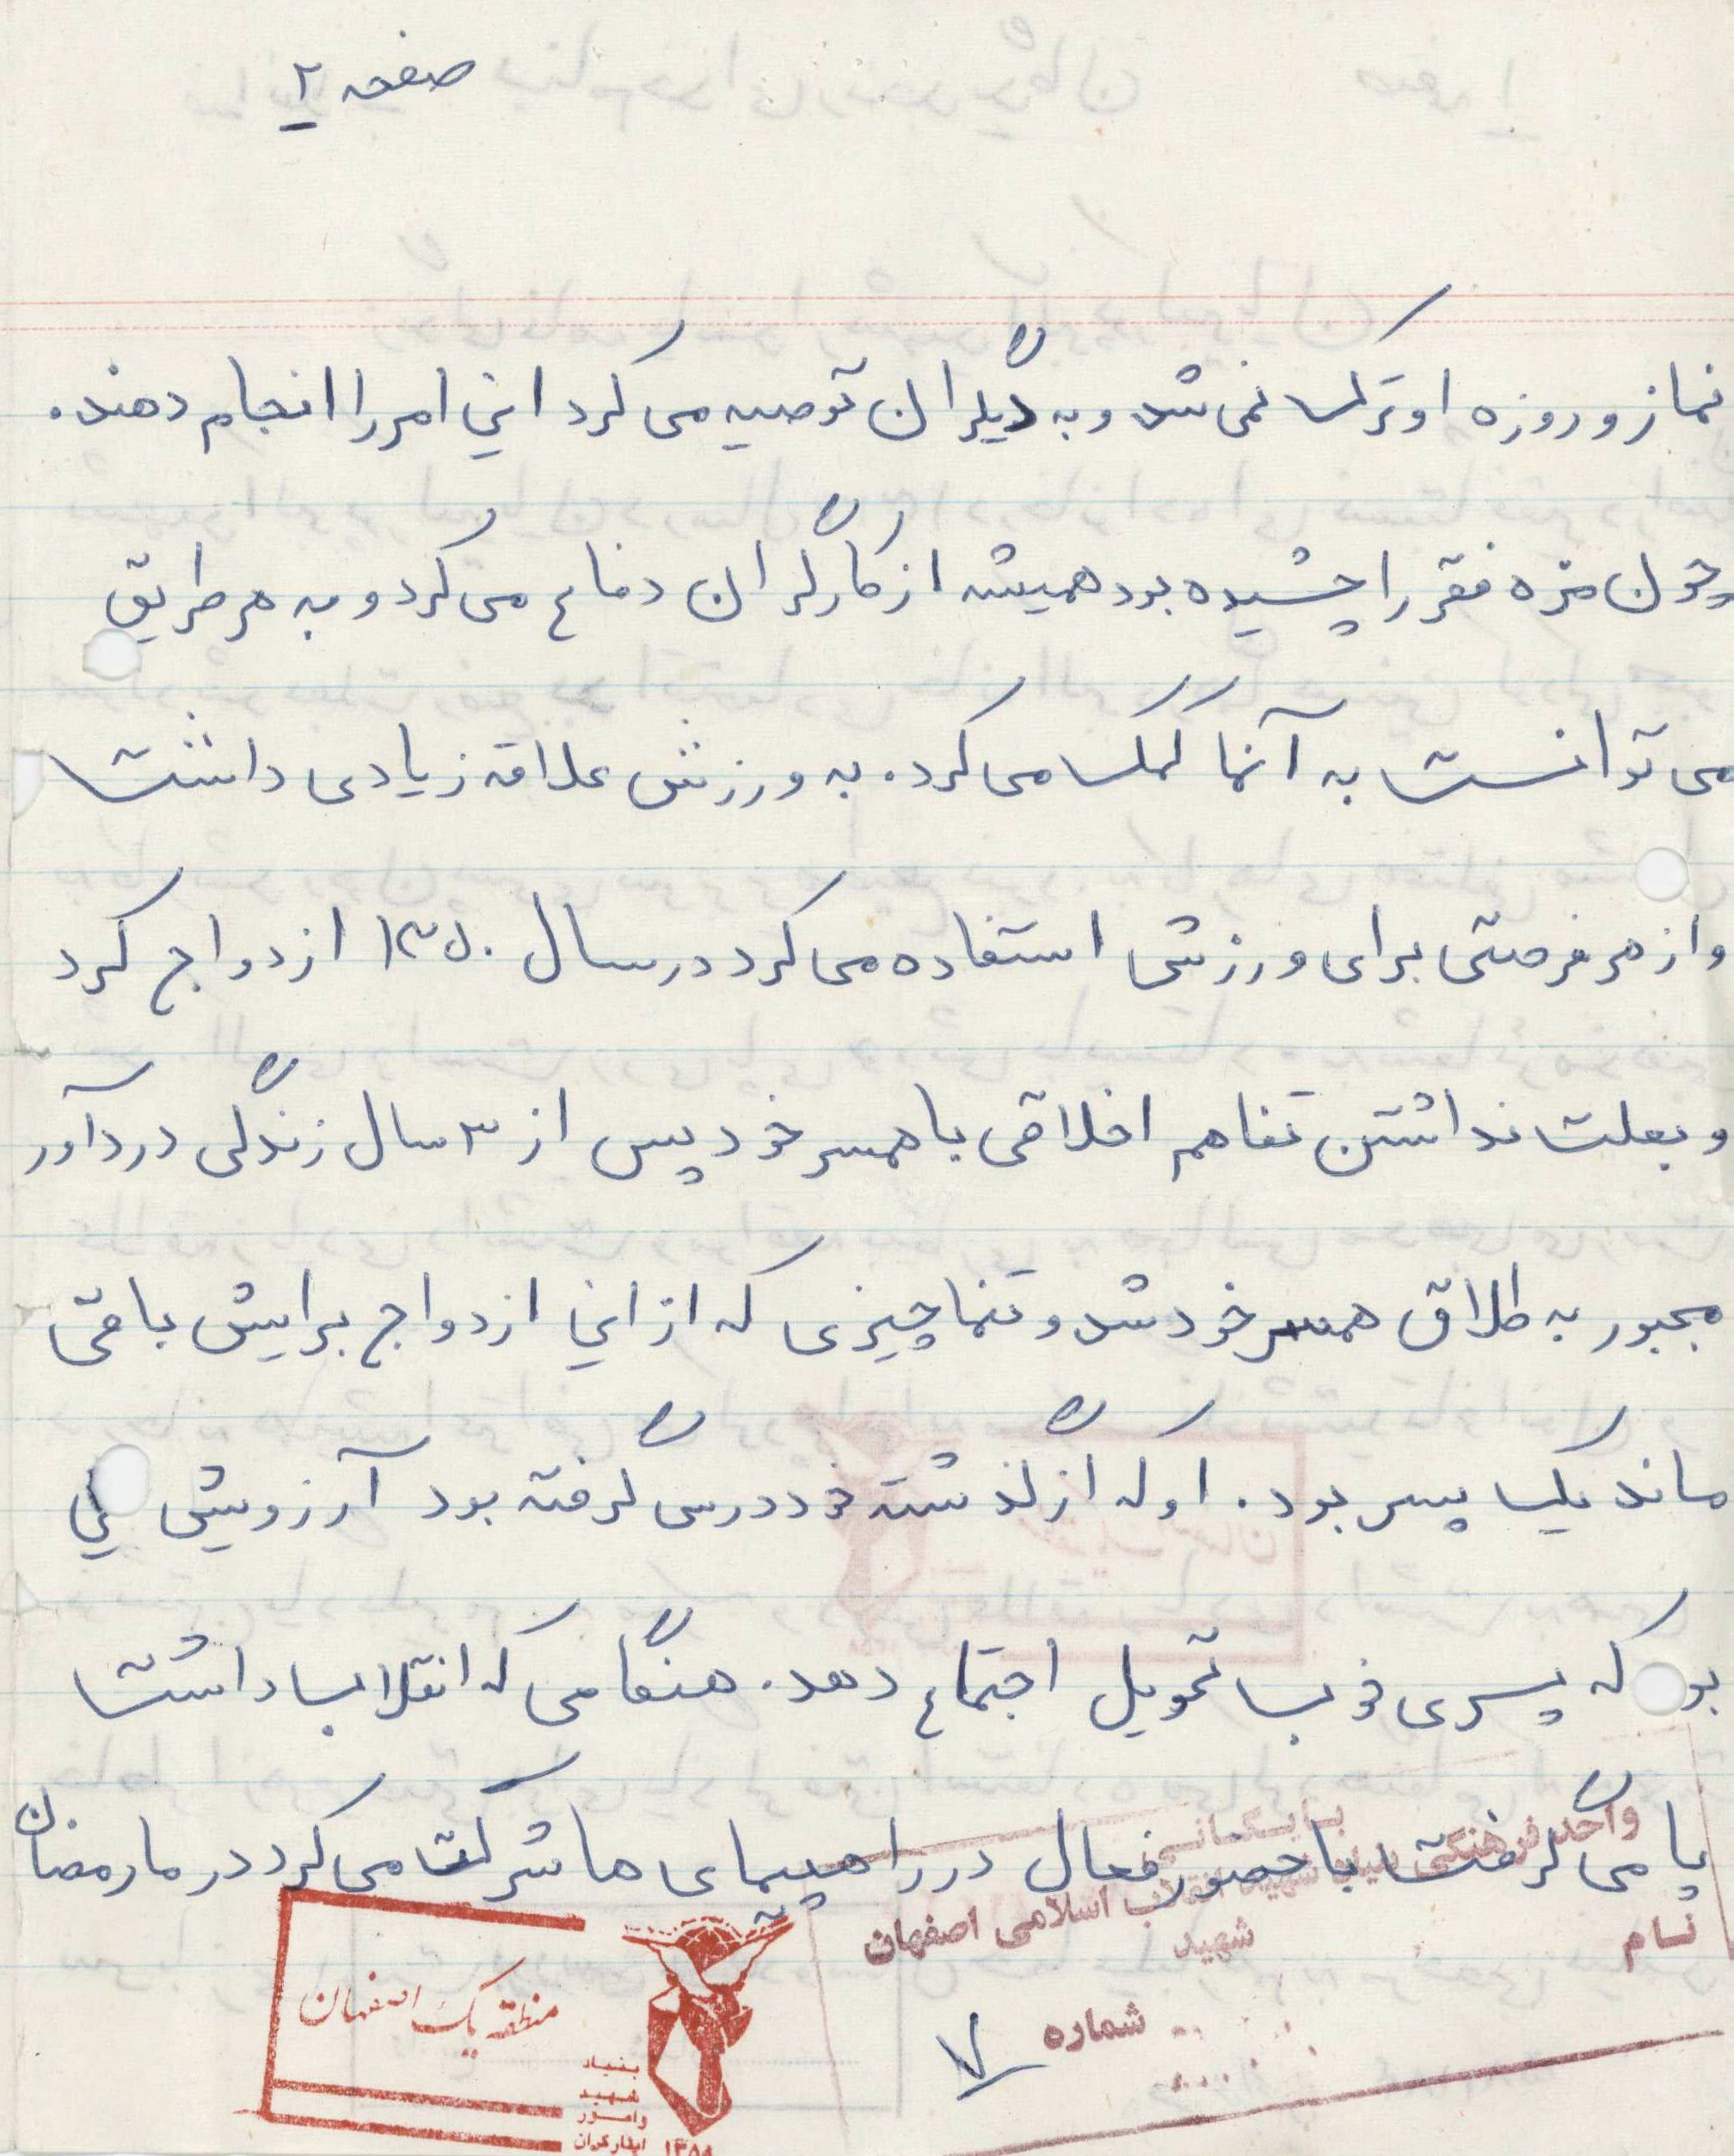 صفحه ۲
نماز و روزه او ترک نمی شد و به دیگران توصیه می کرد این امر را انجام دهند.
چون مزه فقر را چشیده بود همیشه از کارگران دفاع می کرد و به هر طریق
می توانست به آنها کمک می کرد. به ورزش علاقه زیادی داشت
و از هر فرصتی برای ورزش استفاده می کرد در سال ۱۳۵۰ ازدواج کرد
و بعلت نداشتن تفاهم اخلاقی با همسر خود پس از ۳ سال زندگی دردآور
مجبور به طلاق همسر خود شد و تنها چیزی که از این ازدواج برایش باقی
ماند یک پسر بود. او که از گذشته خود درس گرفته بود آرزویش این
بود که پسری خوب تحویل اجتماع دهد. هنگامی که انقلاب داشت
پا می گرفت با حضور فعال در راهپیمای ها شرکت می کرد در ما رمضان
بایگانی
واحد فرهنگی بنیاد شهید انقلاب اسلامی اصفهان
نام
شهید
شماره
۷
منطقه یک اصفهان
بنیاد
شهید
و امور
ایثارگران
۱۳۵۸